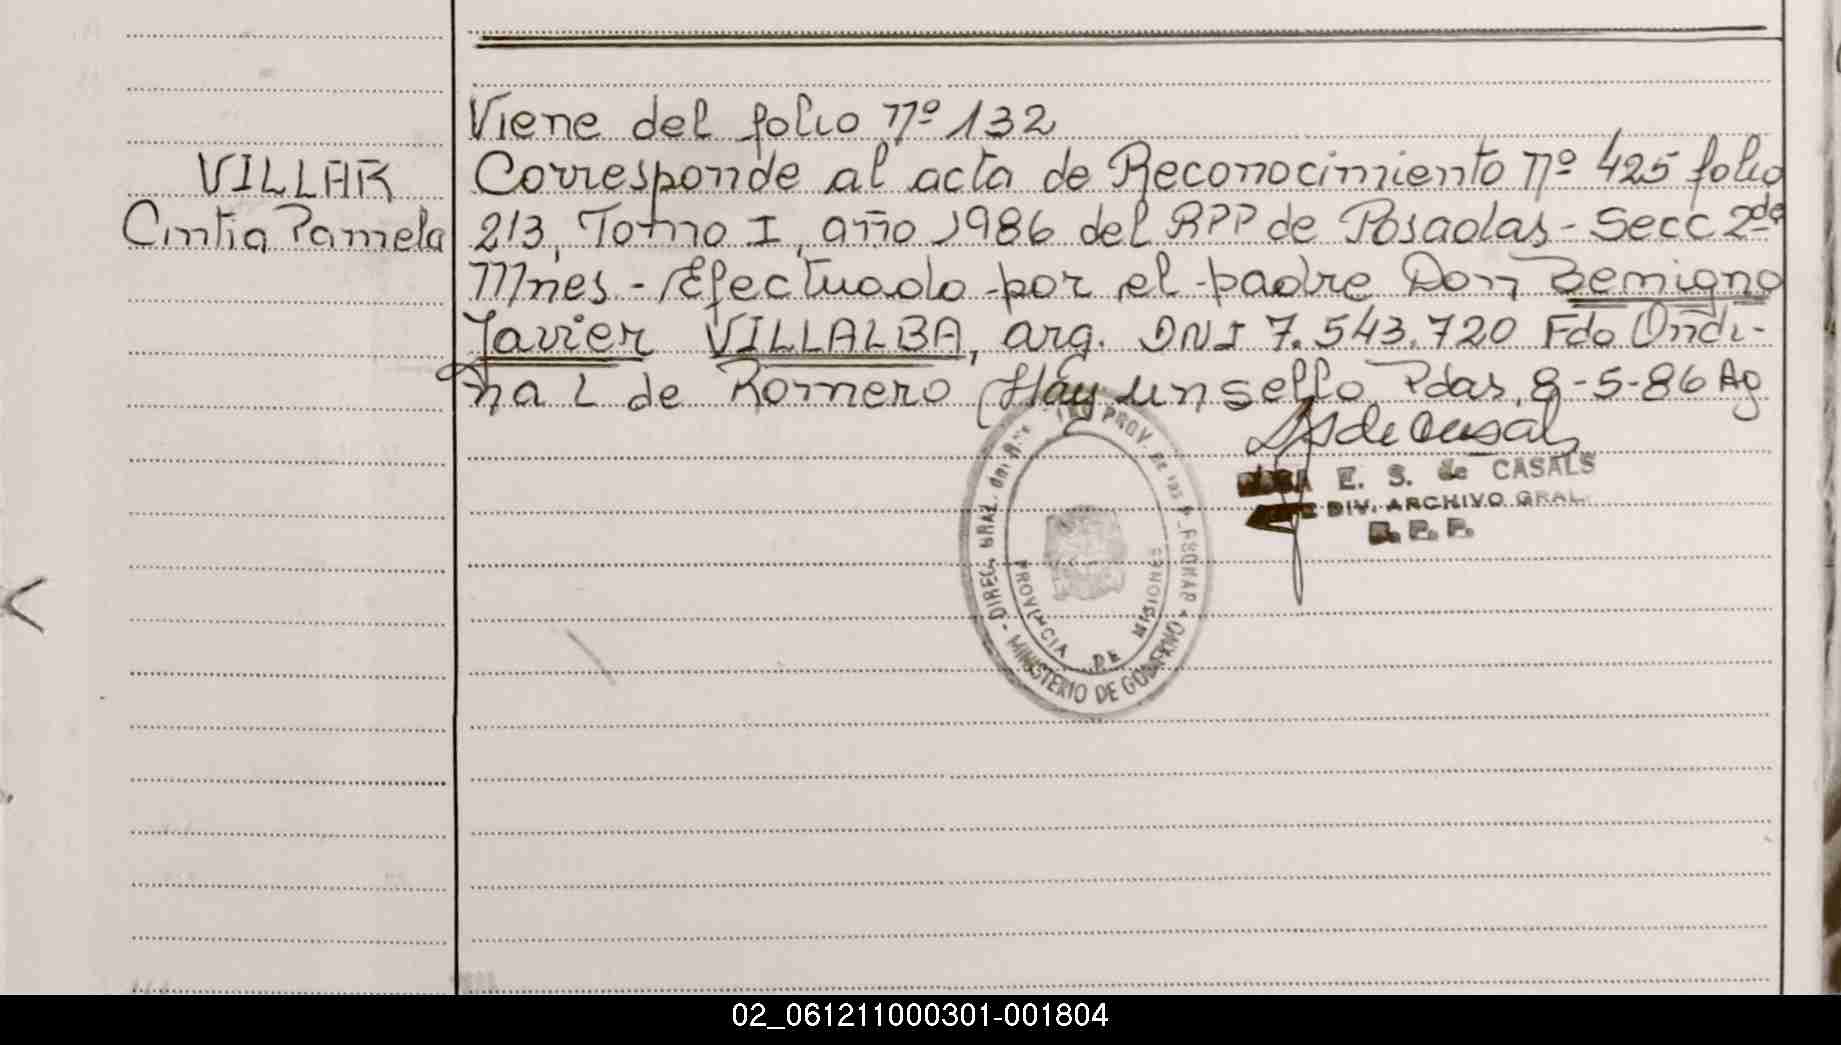 Viene del folio nº 132
VILLAR
Cintia Pamela
Corresponde al acta de Reconocimiento nº 425 folio
213, Tomo I, año 1986 del RPP de Posadas - Secc 2da
Mnes - Efectuado por el padre Don Benigno
Javier VILLALBA, arg. DNI 7.543.720 Fdo Ondi-
na L de Romero (Hay un sello, Pdas, 8-5-86 Ag
E. S. de CASALS
DIV. ARCHIVO GRAL.
R. P. P.
DIREC. GRAL. DEL REG. PROV. DE LAS PERSONAS
MINISTERIO DE GOBIERNO
PROVINCIA DE MISIONES
02_061211000301-001804